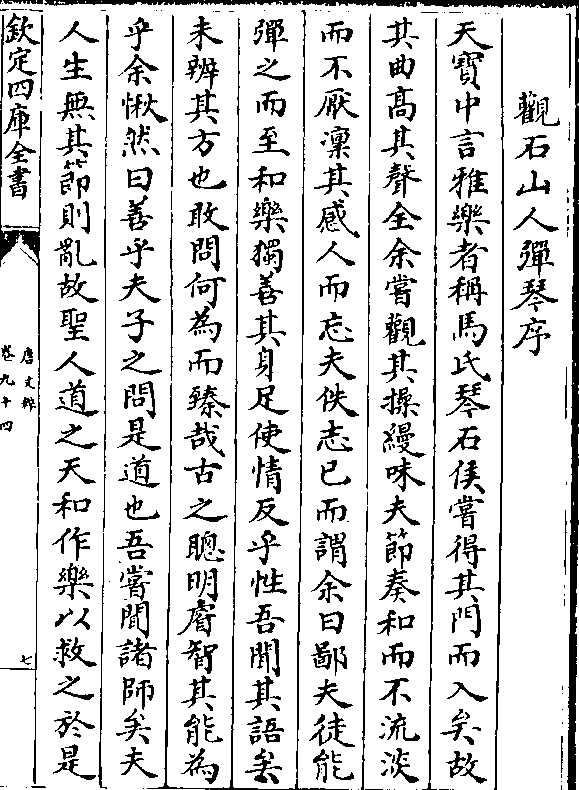 觀石山人彈琴序
天寶中言雅樂者稱馬氏琴石侯嘗得其門而入矣故
其曲髙其聲全余嘗觀其操縵味夫節奏和而不流淡
而不厭凜其感人而忘夫佚志已而謂余曰鄙夫徒能
彈之而至和樂獨善其身足使情反乎性吾聞其語矣
未辨其方也敢問何為而臻哉古之聰明睿智其能為
乎余愀然曰善乎夫子之問是道也吾嘗聞諸師矣夫
人生無其節則亂故聖人道之天和作樂以救之於是
欽定四庫全書
唐文粹
卷九十四
七